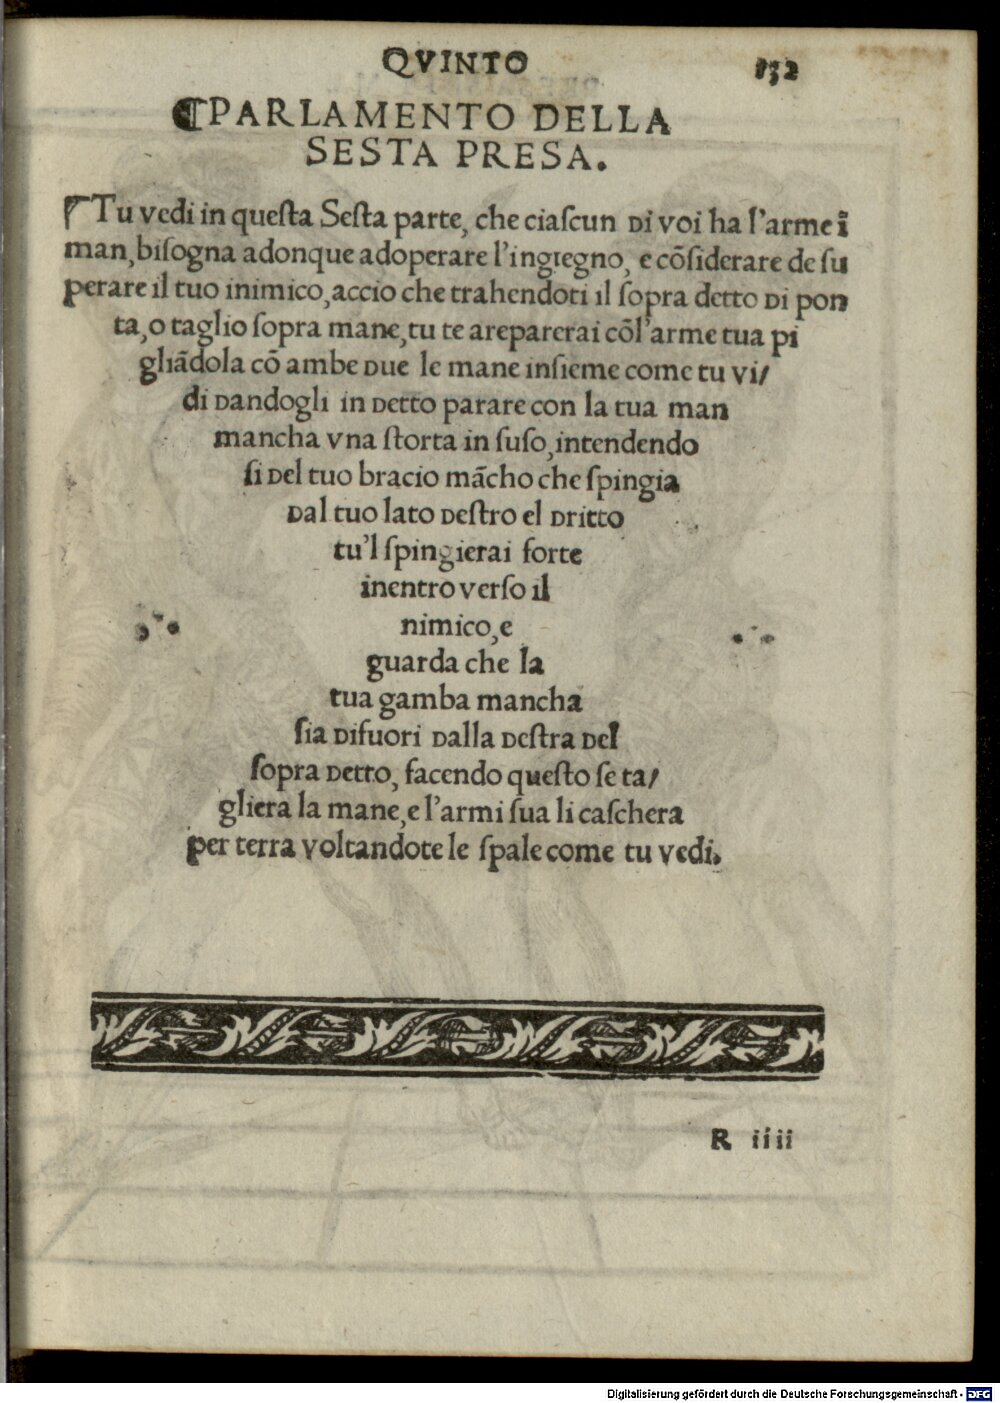 QVINTO 132
¶PARLAMENTO DELLA
SESTA PRESA.
Tu vedi in queſta Seſta parte, che ciaſcun Di voi ha l'arme ĩ
man, biſogna adonque adoperare l'ingiegno, e cõſiderare de ſu
perare il tuo inimico, accio che trahendoti il ſopra detto Di pon
ta, o taglio ſopra mane, tu te areparerai cõl'arme tua pi
gliãdola cõ ambe Due le mane inſieme come tu vi/
di Dandogli in Detto parare con la tua man
mancha vna ſtorta in ſuſo, intendendo
ſi Del tuo bracio mãcho che ſpingia
Dal tuo lato Deſtro el Dritto
tu'l ſpingierai forte
inentro verſo il
nimico, e
guarda che la
tua gamba mancha
ſia Difuori Dalla Deſtra Del
ſopra Detto, facendo queſto ſe ta/
gliera la mane, e l'armi ſua li caſchera
per terra voltandote le ſpale come tu vedi.
R iiii
Digitalisierung gefördert durch die Deutsche Forschungsgemeinschaft - DFG